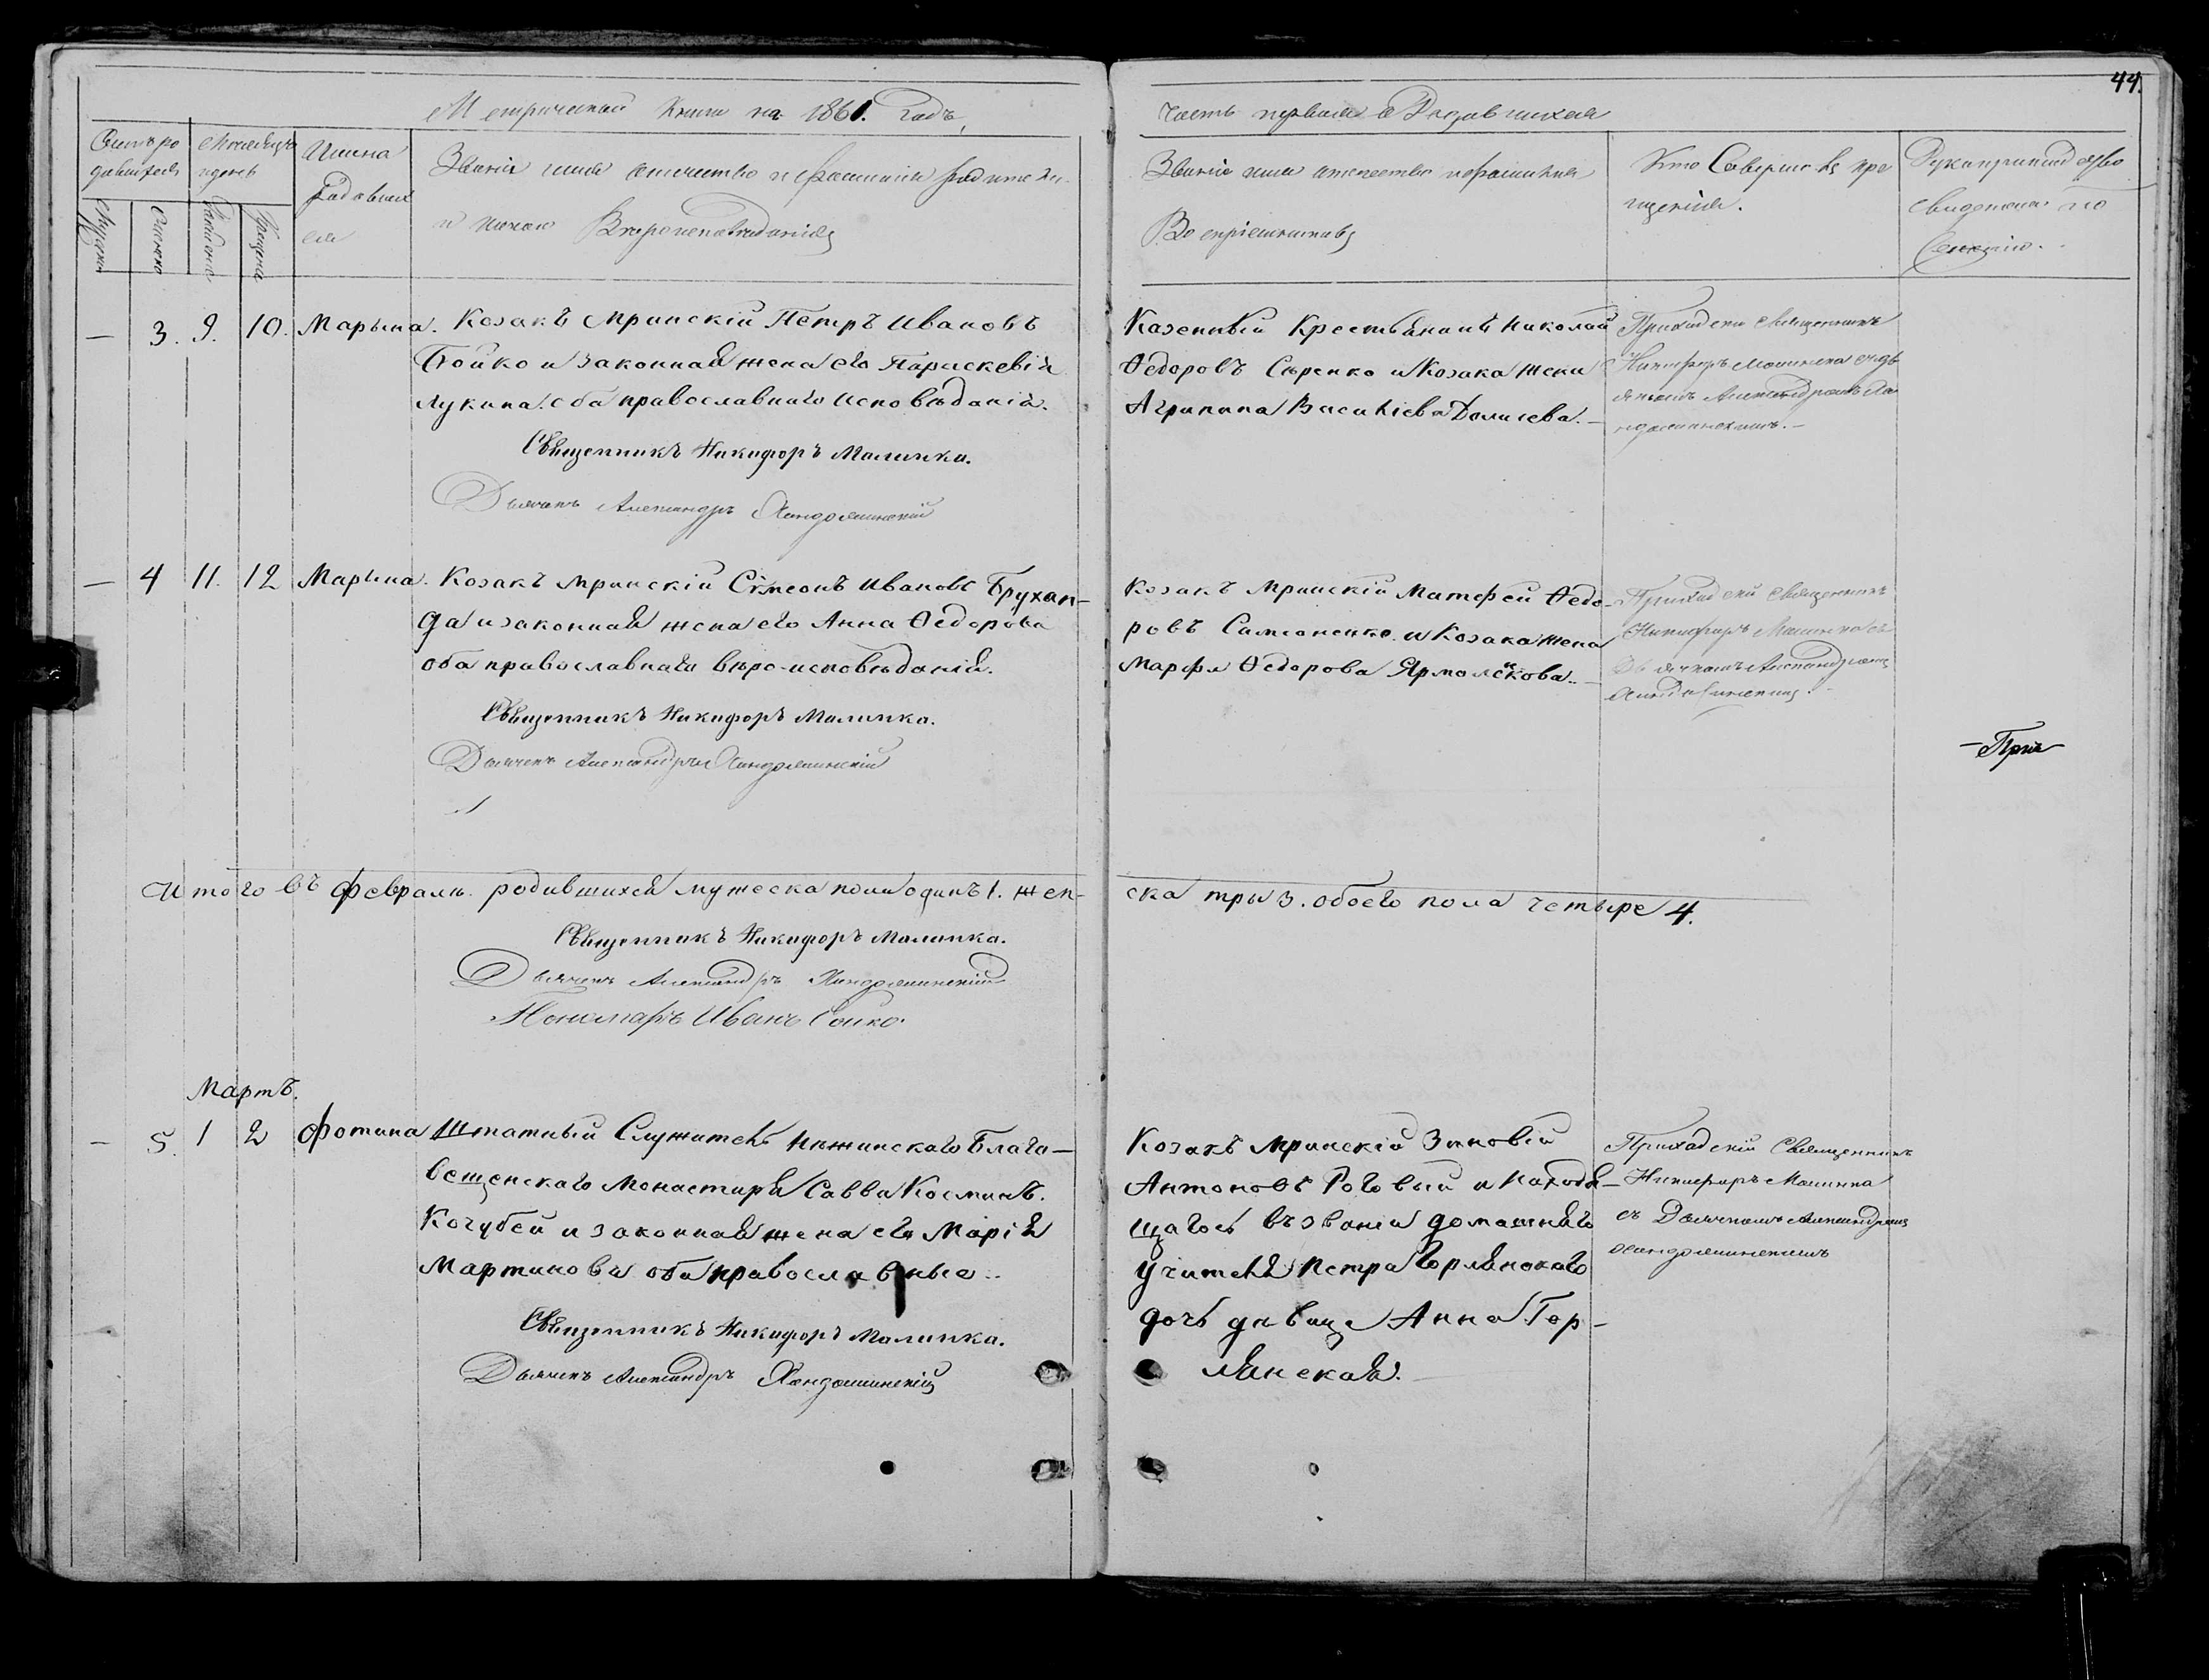 44.
Метрической Книги на 1861. Годъ,
часть первая о Родившихся
Счетъ ро
дившихся
Месяцъ
и день
Имена
Родивших
ся
Званіе имя отчество и фамилія родителей
и какого Вероисповеданія
Званіе имя отчество и фамилія
Воспріемниковъ
Кто Совершалъ кре
щеніе.
Рукоприкладство
свидетелей по
Мужеска
Женска
Рожденія
Крещенія
— 3. 9. 10. Марына. Козакъ Мринскій Петръ Ивановъ
Бойко и законная жена его Параскевія
Лукина. оба православнаго исповѣданія.
Священникъ Никифоръ Малинка.
Дьячекъ Александръ Хандожинскій
Казенный Крестьянинъ Николай
Ѳедоровъ Сѣренко и Козака жена
Агрипина Василіева Долисева.—
Приходскій священникъ
Никифоръ Малинка съ дь
ячкомъ Александромъ Ха
ндожинскимъ.—
— 4 11. 12 Марына. Козакъ Мринскій Сѵмеонъ Ивановъ Брухан-
да и законная жена его Анна Ѳедорова
оба православнаго вѣро-исповѣданія.
Священникъ Никифоръ Малинка.
Дьячекъ Александръ Хандожинскій
Козакъ Мринскій Матфей Ѳедо-
ровъ Самсоненко. и Козака жена
Марфа Ѳедорова Ярмолскова..—
Приходскій священникъ
Никифоръ Малинка съ
Дьячкомъ Александромъ
Хандожинскимъ.
Итого въ Февралѣ. родившихся мужеска пола одинъ 1. жен-
ска тры 3. обоего пола четыре 4.
Священникъ Никифоръ Малинка.
Дьячекъ Александръ Хандожинскій
Пономарь Иванъ Бойко.
Мартъ.
— 5. 1 2 Фотина Штатный Служитель Нѣжинскаго Благо-
вещенскаго Монастиря Савва Косминъ.
Кочубей и законная жена его Марія
Мартинова оба православные..
Священникъ Никифоръ Малинка.
Дьячекъ Александръ Хандожинскій
Козакъ Мринскій Зиновій
Антоновъ Роговый и Находя-
щагось въ званіи домашняго
учителя Петра Горлянскаго
дочь дѣвица Анна Гор-
лянская.
Приходскій Священникъ
Никифоръ Малинка
съ Дьячкомъ Александромъ
Хандожинскимъ